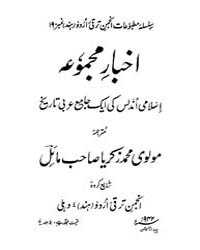 سلسلہ مطبوعات انجمن ترقی اُردو (ہند) نمبر ۱۹
اخبارِ مجموعہ
اسلامی اندلس کی ایک جامع عربی تاریخ
مترجمہ
مولوی محمد زکریا صاحب مائل
شایع کردہ
انجمن ترقی اُردو (ہند) دہلی